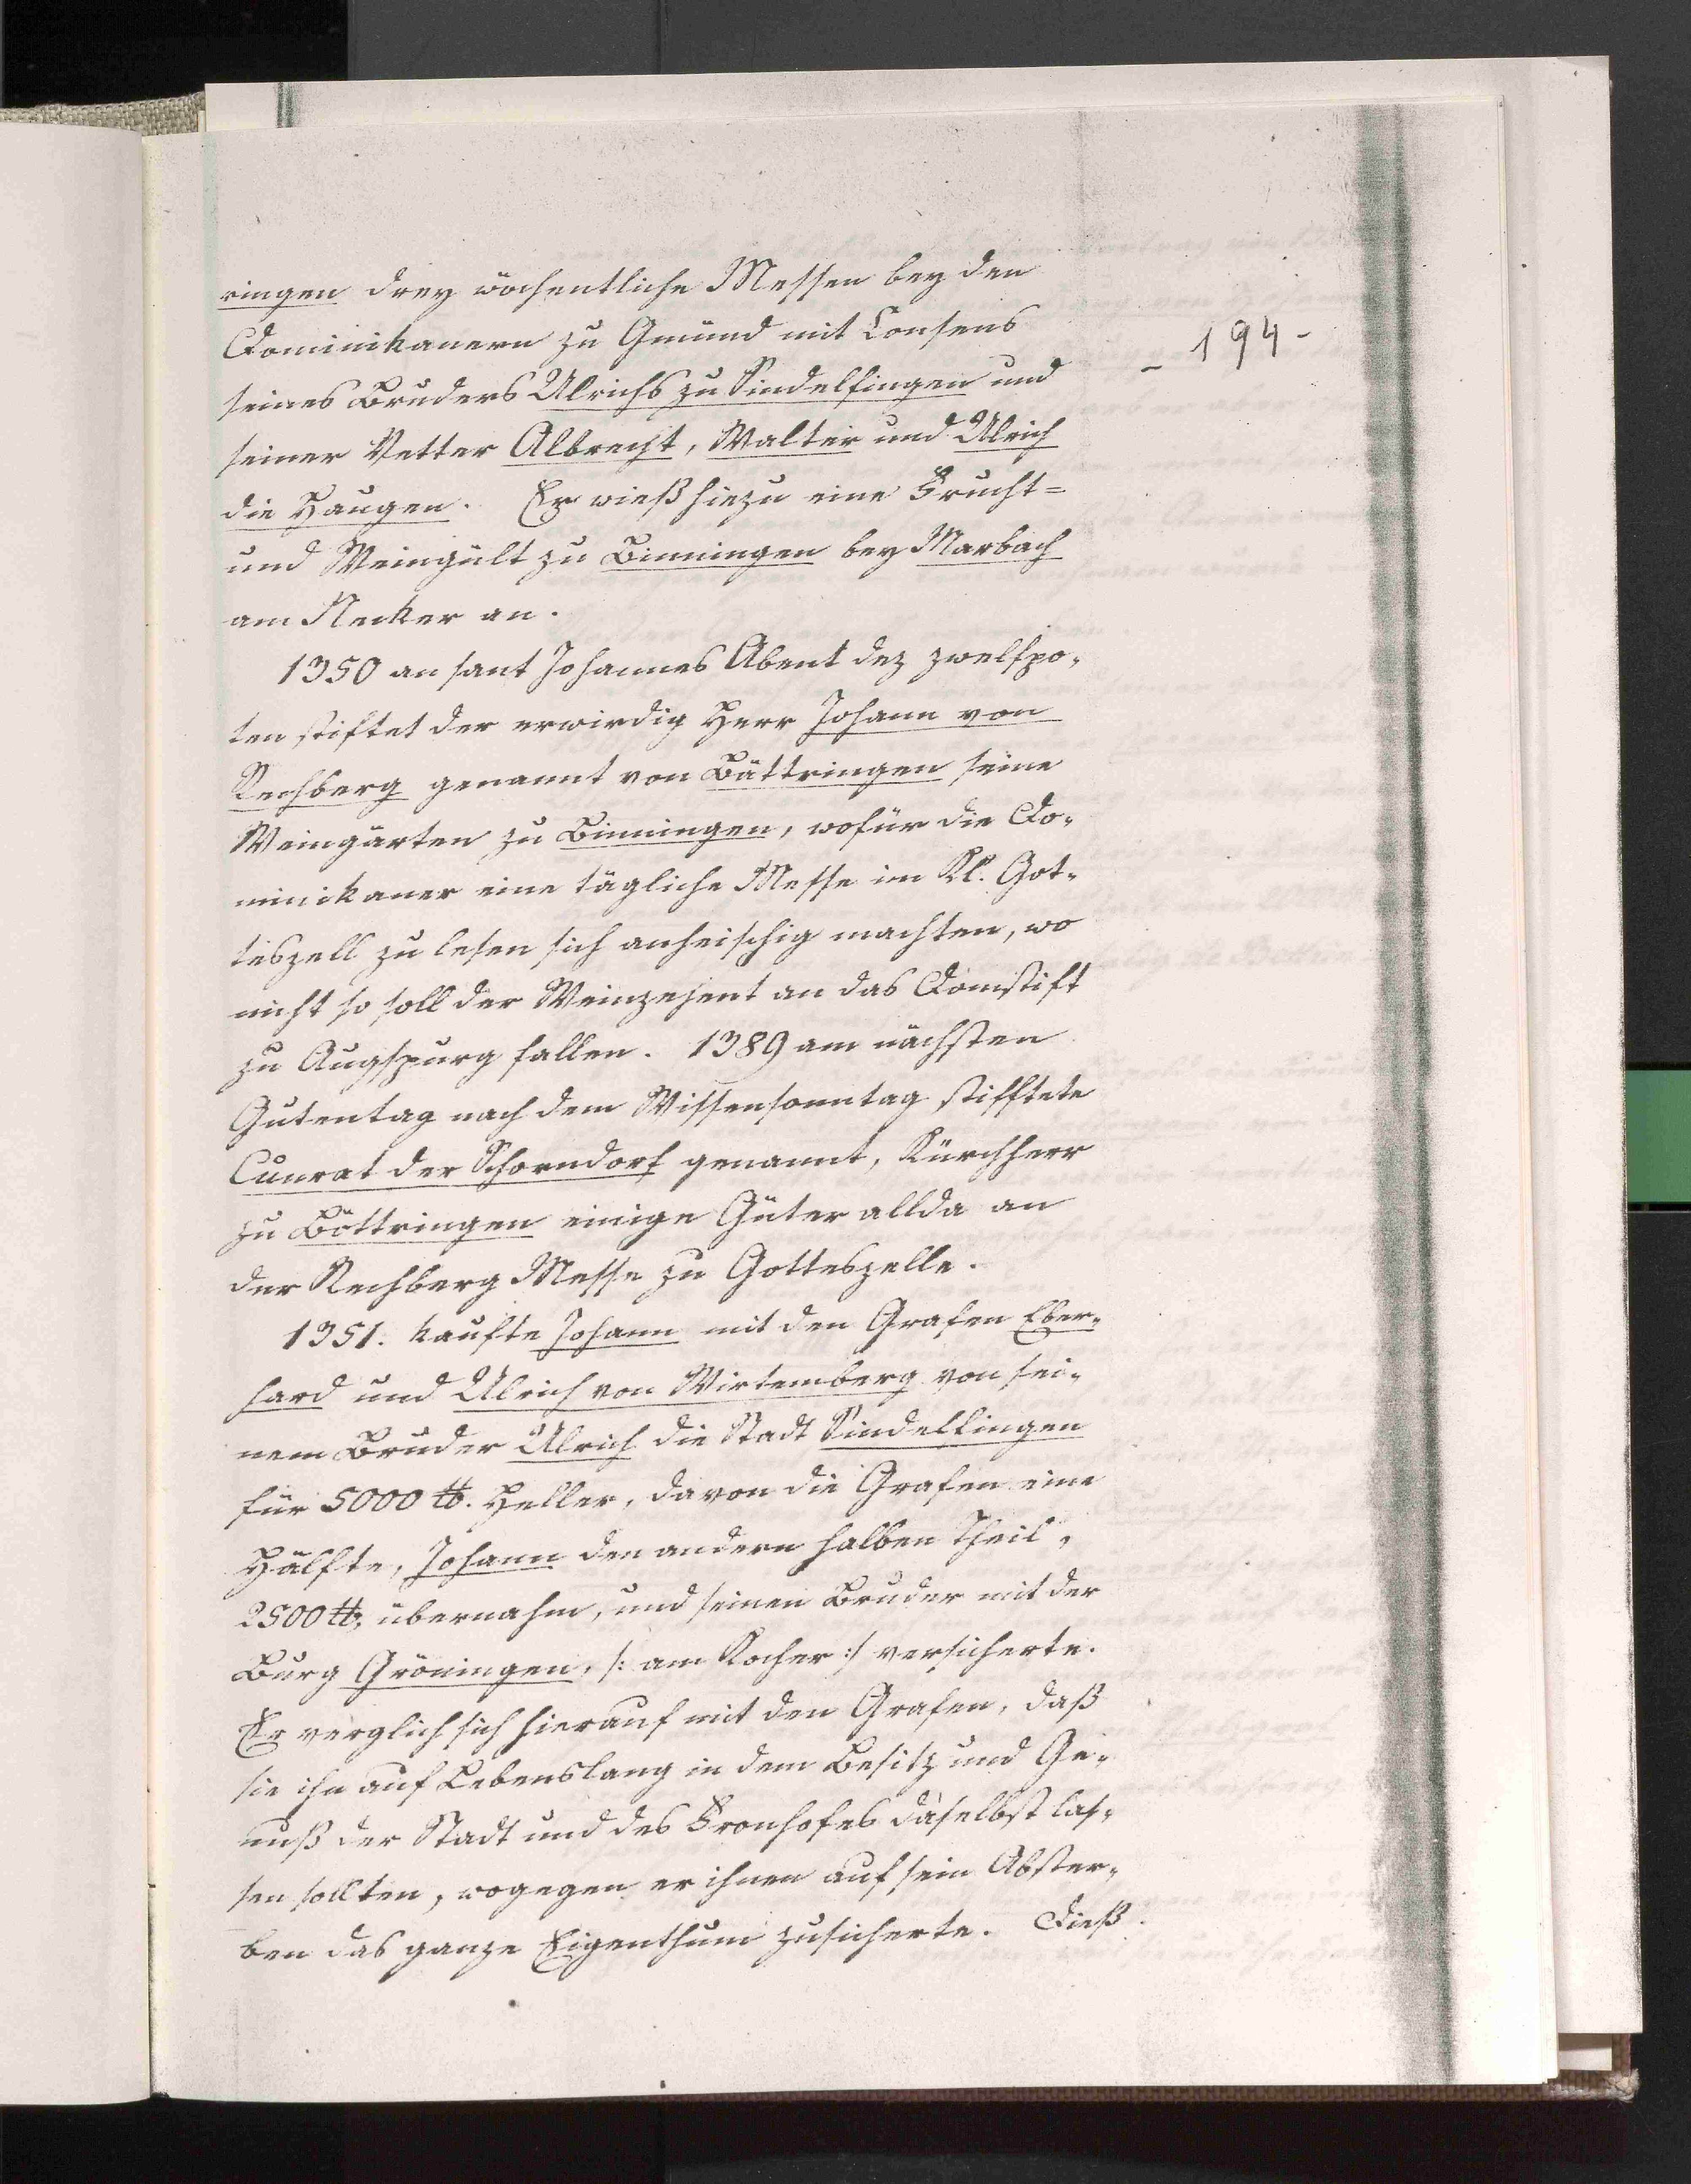 ringen drey wöchentliche Messen bey den
Dominikanern zu Gmünd mit Consens
- 194 -
seines Bruders Ulrichs zu Sindelfingen und
seiner Vetter Albrecht, Walter und Ulrich
die Haugen. Er wieß hiezu eine Frucht=
und Weingült zu Binningen bey Marbach
am Neckar an.
1350 an sant Johannes Abent dez zwelfpo-
ten stiftet der erwirdig Herr Johann von
Rechberg genannt von Bättringen seine
Weingärten zu Binningen, wofür die Do-
minikaner eine tägliche Messe im Kl. Got-
teszell zu lesen sich anheischig machten, wo
nicht so soll der Weinzehent an das Domstift
zu Augspurg fallen. 1389 am nächsten
Gutentag nach dem Wissensonntag stifftete
Cunrat der Schorndorf genannt, Kürchherr
zu Böttringen einige Güter allda an
der Rechberg Messe zu Gotteszelle.
1351. kaufte Johann mit den Grafen Eber-
hard und Ulrich von Wirtemberg von sei-
nem Bruder Ulrich die Stadt Sindelfingen
für 5000 ℔. Heller, davon die Grafen eine
Hälfte, Johann den andern halben Theil,
2500 ℔, übernahm, und seinen Bruder mit der
Burg Gröningen, /: am Kocher :/ versicherte.
Er verglich sich hierauf mit den Grafen, daß
sie ihn auf Lebenslang in dem Besitz und Ge-
nuß der Stadt und des Fronhofes daselbst las-
sen sollten, wogegen er ihnen auf sein Abster-
ben das ganze Eigenthum zusicherte. Dieß